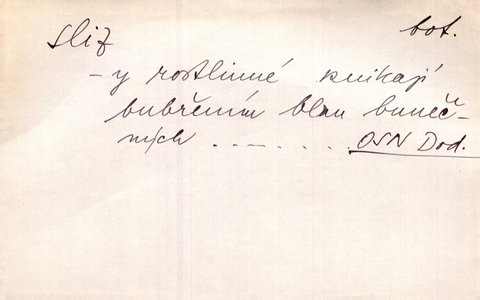 sliz bot.
– y rostlinné vznikají
bubřením blan buněč-
ných . . – . . . . OSN Dod.